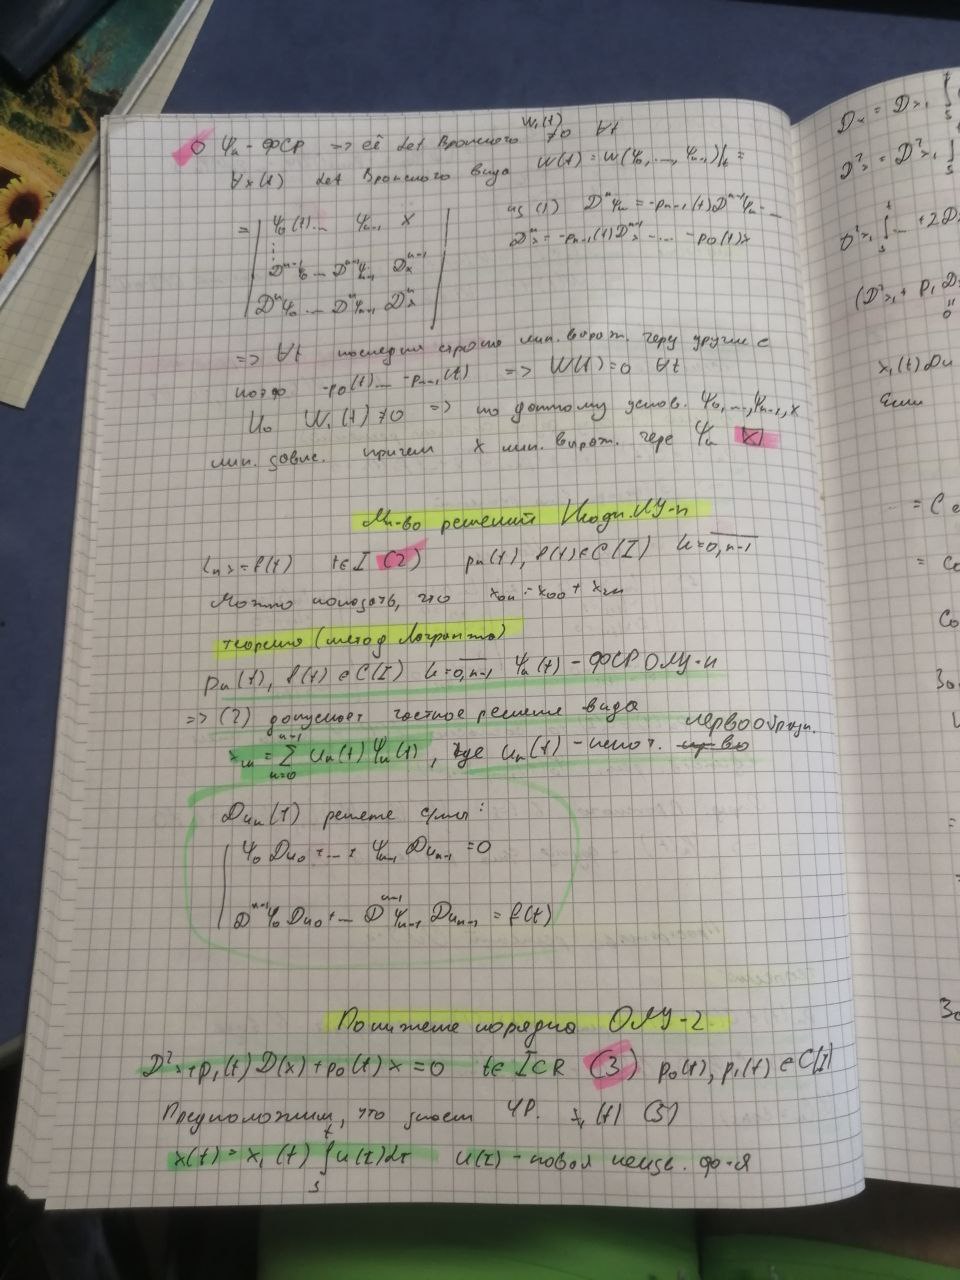 ψₖ - ФСР => её det Вронского W₁(t) ≠0 ∀t
∀x(t) det Вронского вида W(t) = W(ψ₀,...,ψₙ₋₁,x)|ₜ =
= | ψ₀(t)... ψₙ₋₁ x |
из (1) Dⁿψₖ = -pₙ₋₁(t)Dⁿ⁻¹ψₖ - ...
⋮
Dⁿx = -pₙ₋₁(t)Dⁿ⁻¹x - ... -p₀(t)x
Dⁿ⁻¹ψ₀ ... Dⁿ⁻¹ψₙ₋₁ Dⁿ⁻¹x
Dⁿψ₀ ... Dⁿψₙ₋₁ Dⁿx
=> ∀t последняя строка лин. выраж. через другие с
коэф -p₀(t)... -pₙ₋₁(t) => W(t)=0 ∀t
Но W₁(t) ≠0 => по достому услов. ψ₀,...,ψₙ₋₁,x
лин. завис. причем x лин. выраж. чере ψₖ ☒
Мн-во решений Неодн.ЛУ-n
Lₙx = f(t) t∈I (2) pₖ(t), f(t)∈C(I) k=0,n-1
Можно показать, что xон = xоо + xчн
теорема (метод Лагранжа)
pₖ(t), f(t)∈C(I) k=0,n-1 ψₖ(t) - ФСР ОЛУ-n
=> (2) допускает частное решение вида
xчн = ∑ₖ₌₀ⁿ⁻¹ uₖ(t) ψₖ(t), где uₖ(t) - некот. первообразн.
Duₖ(t) решение с-мы:
ψ₀Du₀ + ... + ψₙ₋₁Duₙ₋₁ = 0
Dⁿ⁻¹ψ₀Du₀ + ... Dⁿ⁻¹ψₙ₋₁ Duₙ₋₁ = f(t)
Понижение порядка ОЛУ-2
D²x+p₁(t)D(x)+p₀(t)x = 0 t∈I⊂R (3) p₀(t), p₁(t)∈C(I)
Предположим, что знаем ЧР. x₁(t) (3)
x(t) = x₁(t) ∫ₛᵗ u(τ)dτ u(τ) - новая неизв. ф-я
Dx = Dx₁ ∫
D²x = D²x₁ ∫
D²x₁ ∫ₛᵗ ... + 2D
(D²x₁ + p₁D
0
x₁(t)Du
Если
= C e
= Co
Co
За
=